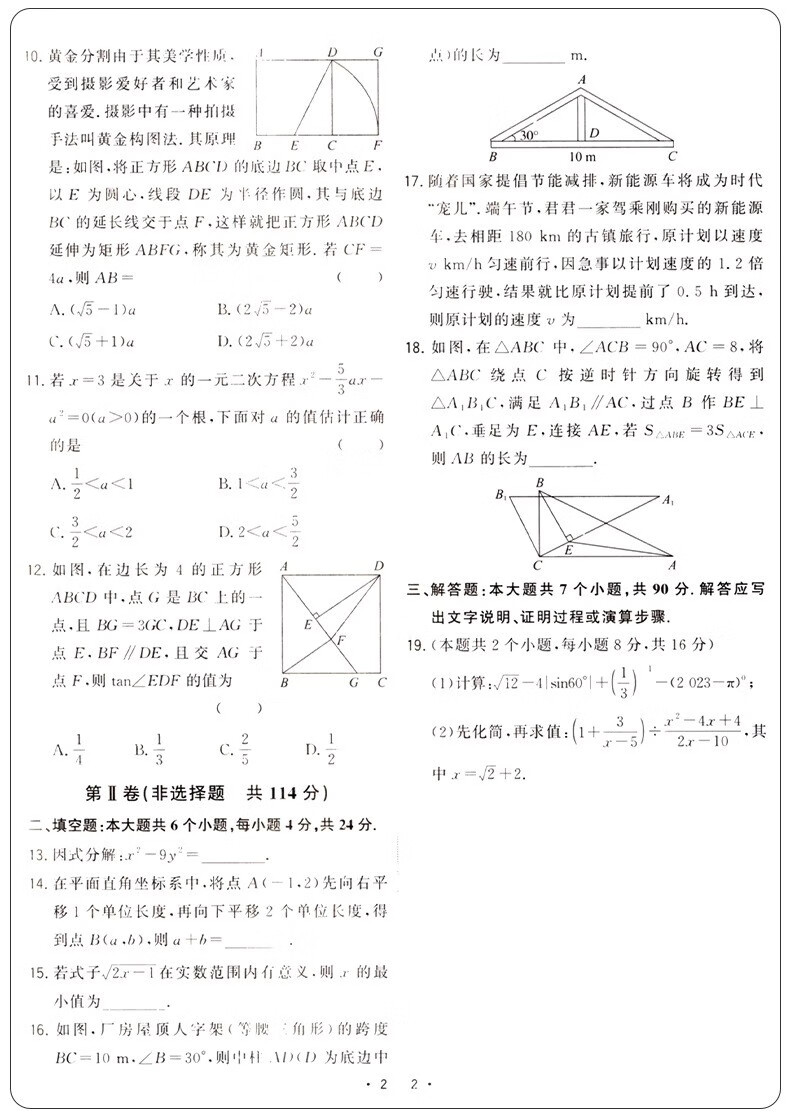 10. 黄金分割由于其美学性质,
受到摄影爱好者和艺术家
的喜爱.摄影中有一种拍摄
手法叫黄金构图法.其原理
A D G
B E C F
是:如图,将正方形 ABCD 的底边 BC 取中点 E,
以 E 为圆心,线段 DE 为半径作圆,其与底边
BC 的延长线交于点 F,这样就把正方形 ABCD
延伸为矩形 ABFG,称其为黄金矩形.若 CF=
4a,则 AB= ( )
A. (√5-1)a B. (2√5-2)a
C. (√5+1)a D. (2√5+2)a
11. 若 x=3 是关于 x 的一元二次方程 x²-5/3ax-
a²=0(a>0)的一个根,下面对 a 的值估计正确
的是 ( )
A. 1/2<a<1 B. 1<a<3/2
C. 3/2<a<2 D. 2<a<5/2
12. 如图,在边长为 4 的正方形
ABCD 中,点 G 是 BC 上的一
点,且 BG=3GC,DE⊥AG 于
点 E,BF∥DE,且交 AG 于
点 F,则 tan∠EDF 的值为
( )
A D
E
F
B G C
A. 1/4 B. 1/3 C. 2/5 D. 1/2
第Ⅱ卷(非选择题 共 114 分)
二、填空题:本大题共 6 个小题,每小题 4 分,共 24 分.
13. 因式分解:x²-9y²=________.
14. 在平面直角坐标系中,将点 A(-1,2)先向右平
移 1 个单位长度,再向下平移 2 个单位长度,得
到点 B(a,b),则 a+b=______.
15. 若式子√(2x-1)在实数范围内有意义,则 x 的最
小值为________.
16. 如图,厂房屋顶人字架(等腰三角形)的跨度
BC=10 m,∠B=30°,则中柱 AD(D 为底边中
点)的长为________ m.
A
30° D
B 10 m C
17. 随着国家提倡节能减排,新能源车将成为时代
“宠儿”.端午节,君君一家驾乘刚购买的新能源
车,去相距 180 km 的古镇旅行,原计划以速度
v km/h 匀速前行,因急事以计划速度的 1.2 倍
匀速行驶,结果就比原计划提前了 0.5 h 到达,
则原计划的速度 v 为________ km/h.
18. 如图,在△ABC 中,∠ACB=90°,AC=8,将
△ABC 绕点 C 按逆时针方向旋转得到
△A₁B₁C,满足 A₁B₁∥AC,过点 B 作 BE⊥
A₁C,垂足为 E,连接 AE,若 S△ABE=3S△ACE,
则 AB 的长为________.
B
B₁ A₁
E
C A
三、解答题:本大题共 7 个小题,共 90 分.解答应写
出文字说明、证明过程或演算步骤.
19. (本题共 2 个小题,每小题 8 分,共 16 分)
(1)计算:√12-4|sin60°|+(1/3)⁻¹-(2 023-π)⁰;
(2)先化简,再求值:(1+3/(x-5))÷(x²-4x+4)/(2x-10),其
中 x=√2+2.
· 2 2 ·